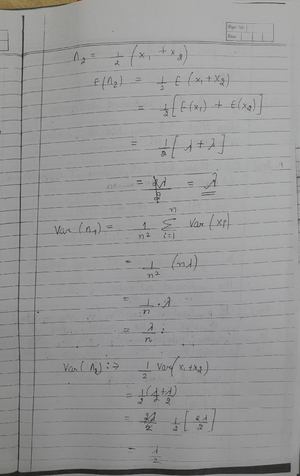 Λ₂ = 1/2 (x₁ + x₂)
E(Λ₂) = 1/2 E (x₁ + x₂)
= 1/2 [E(x₁) + E(x₂)]
= 1/2 [λ + λ]
= 2λ/2 = λ
Var (Λ₁) = 1/n² Σᵢ₌₁ⁿ Var (xᵢ)
= 1/n² (nλ)
= 1/n · λ
= λ/n ;
Var (Λ₂) :→ 1/2 Var (x₁ + x₂)
= 1/2 (λ + λ)/2
= 2λ/2 1/2 [2λ/2]
= λ/2